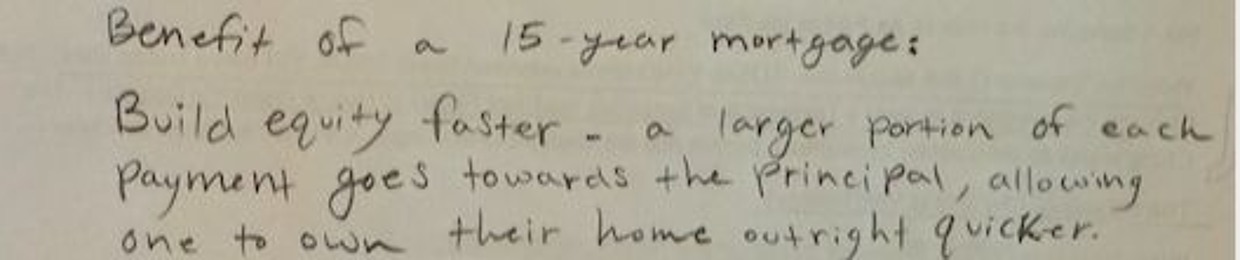 Benefit of a 15-year mortgage:
Build equity faster - a larger portion of each
payment goes towards the principal, allowing
one to own their home outright quicker.